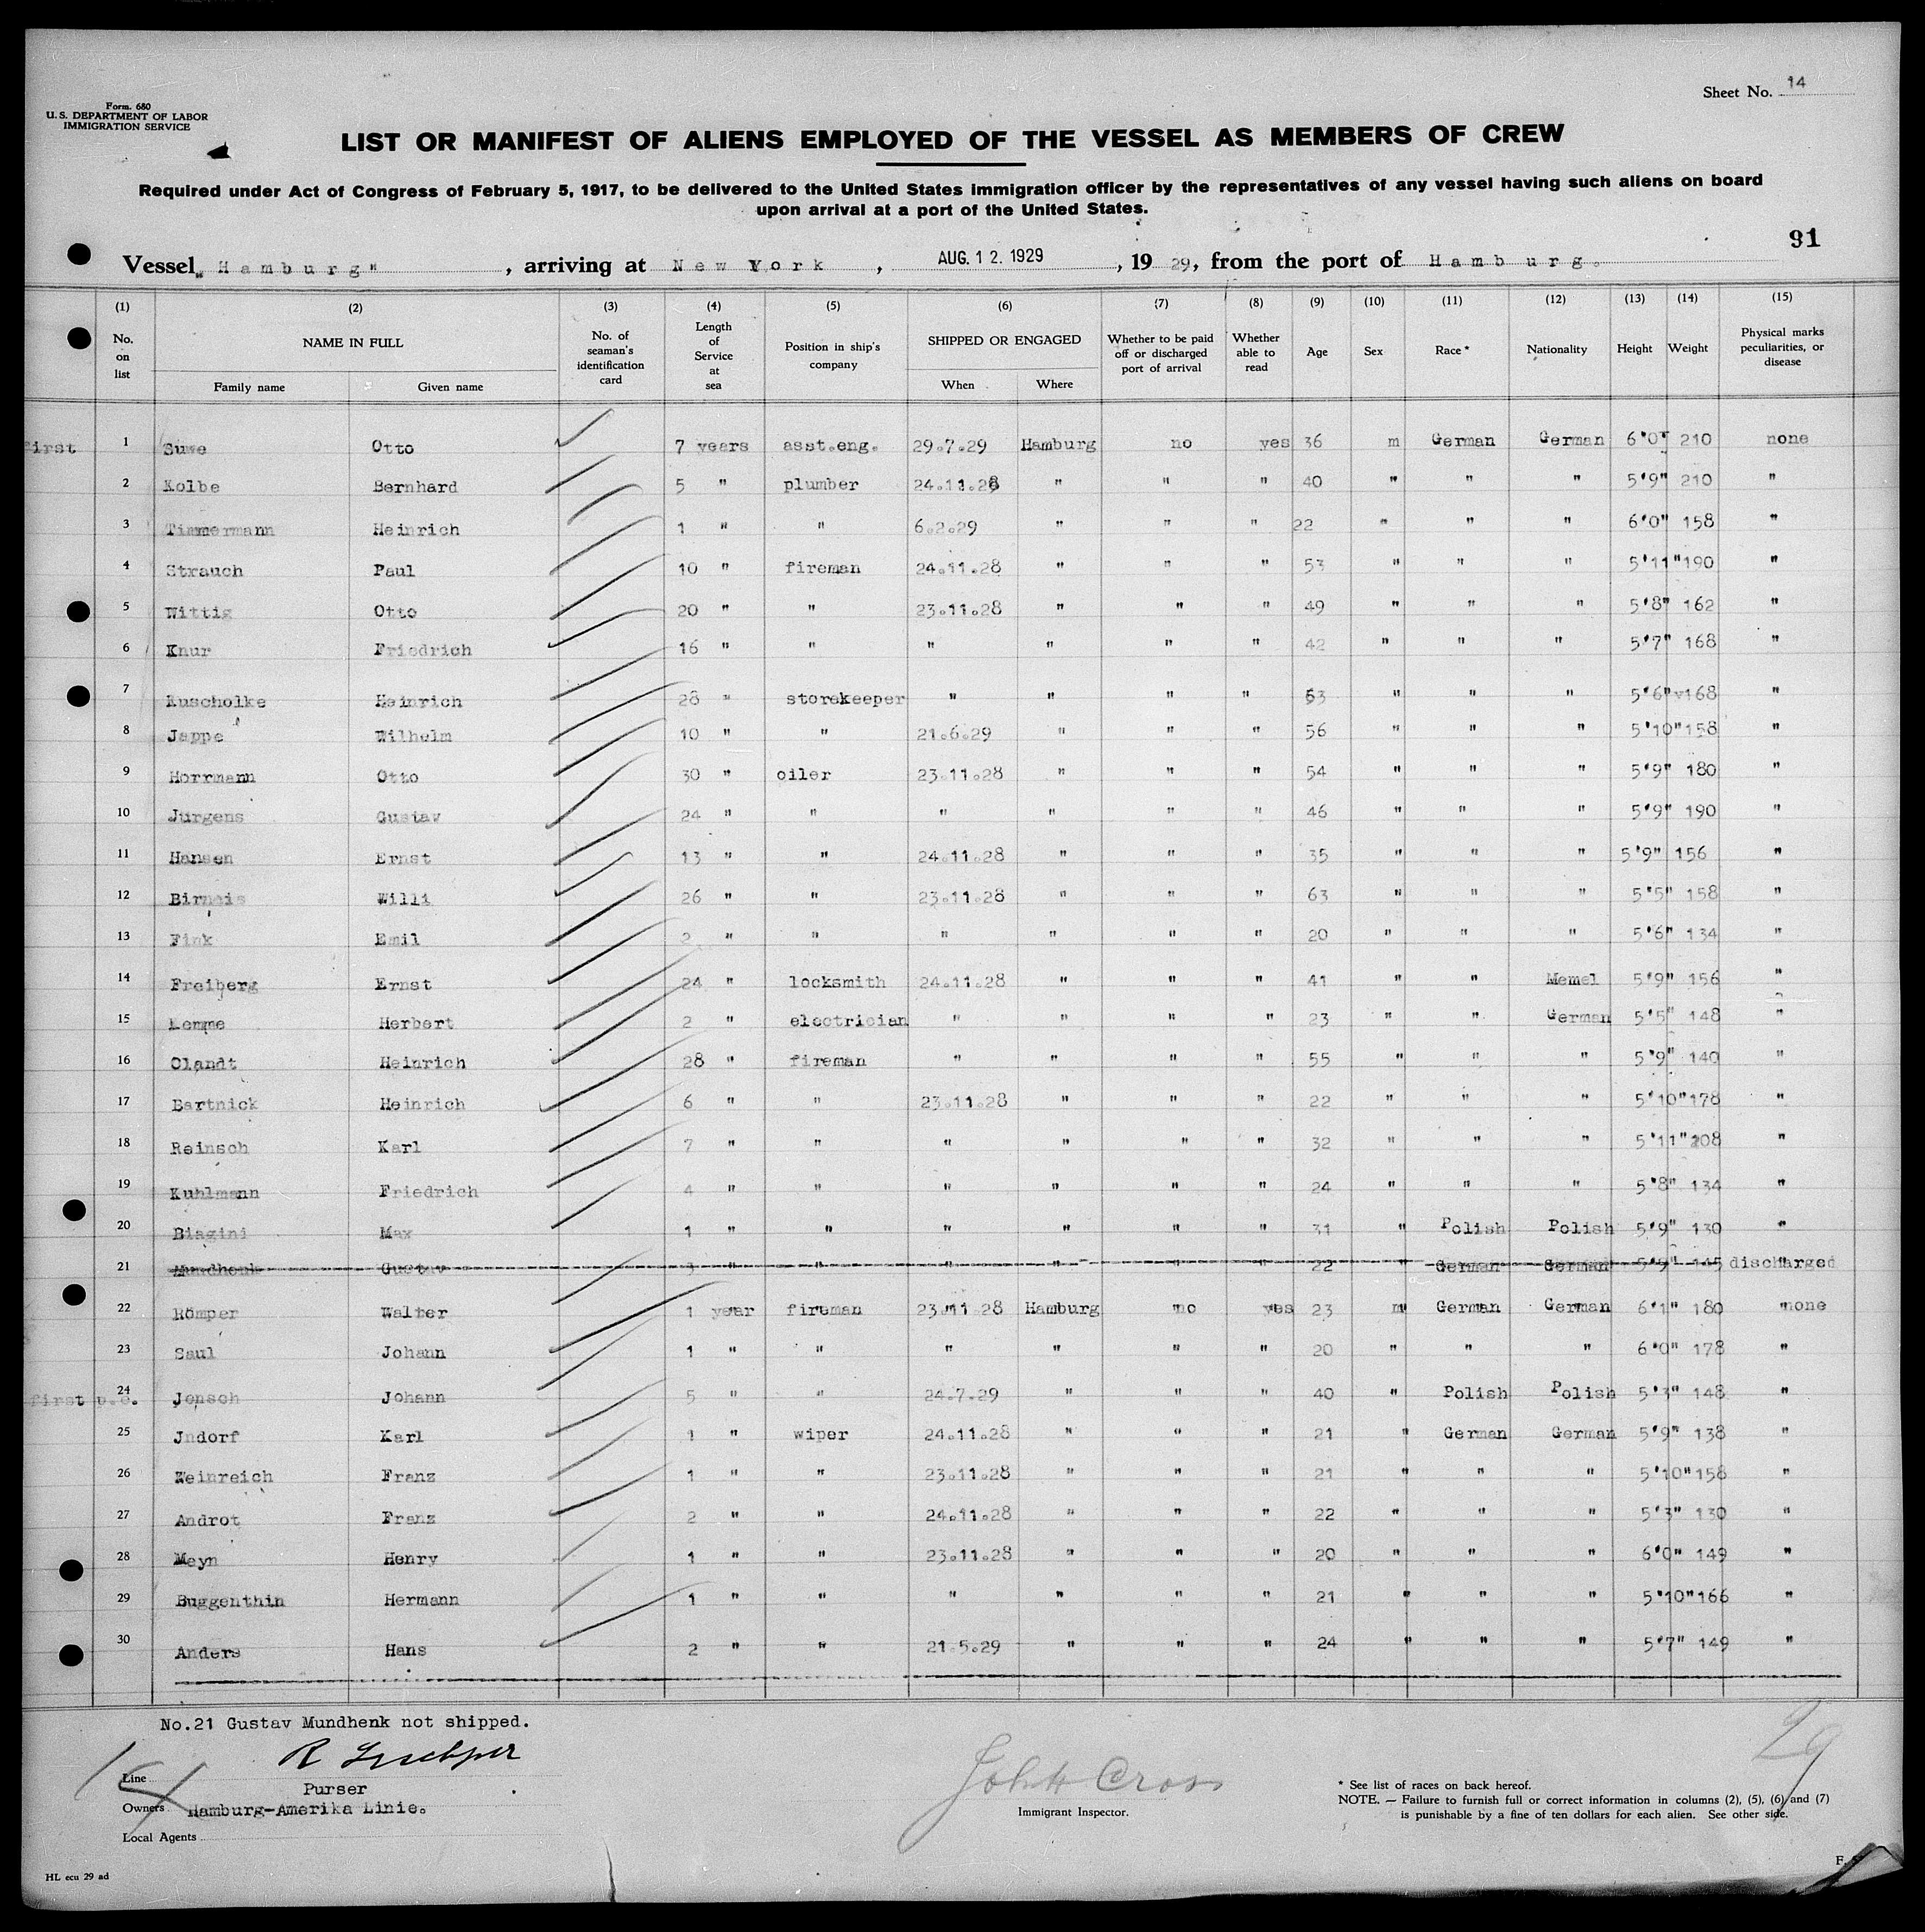 Form. 680
U. S. DEPARTMENT OF LABOR
IMMIGRATION SERVICE
Sheet No. 14
LIST OR MANIFEST OF ALIENS EMPLOYED OF THE VESSEL AS MEMBERS OF CREW
Required under Act of Congress of February 5, 1917, to be delivered to the United States immigration officer by the representatives of any vessel having such aliens on board
upon arrival at a port of the United States.
91
Vessel „Hamburg", arriving at New York, AUG. 12. 1929, 19 29, from the port of Hamburg.
(1) (2) (3) (4) (5) (6) (7) (8) (9) (10) (11) (12) (13) (14) (15)
No. on list NAME IN FULL Family name Given name No. of seaman's identification card Length of Service at sea Position in ship's company SHIPPED OR ENGAGED When Where Whether to be paid off or discharged port of arrival Whether able to read Age Sex Race * Nationality Height Weight Physical marks peculiarities, or disease
first 1 Suwe Otto 7 years asst.eng. 29.7.29 Hamburg no yes 36 m German German 6'0" 210 none
2 Kolbe Bernhard 5 " plumber 24.11.28 " " " 40 " " " 5'9" 210 "
3 Timmermann Heinrich 1 " " 6.2.29 " " " 22 " " " 6'0" 158 "
4 Strauch Paul 10 " fireman 24.11.28 " " " 53 " " " 5'11" 190 "
5 Wittig Otto 20 " " 23.11.28 " " " 49 " " " 5'8" 162 "
6 Knur Friedrich 16 " " " " " " 42 " " " 5'7" 168 "
7 Kuscholke Heinrich 28 " storekeeper " " " " 53 " " " 5'6" 168 "
8 Jappe Wilhelm 10 " " 21.6.29 " " " 56 " " " 5'10" 158 "
9 Horrmann Otto 30 " oiler 23.11.28 " " " 54 " " " 5'9" 180 "
10 Jurgens Gustav 24 " " " " " " 46 " " " 5'9" 190 "
11 Hansen Ernst 13 " " 24.11.28 " " " 35 " " " 5'9" 156 "
12 Birnais Willi 26 " " 23.11.28 " " " 63 " " " 5'5" 158 "
13 Fink Emil 2 " " " " " " 20 " " " 5'6" 134 "
14 Freiberg Ernst 24 " locksmith 24.11.28 " " " 41 " " Memel 5'9" 156 "
15 Lemme Herbert 2 " electrician " " " " 23 " " German 5'5" 148 "
16 Olandt Heinrich 28 " fireman " " " " 55 " " " 5'9" 140 "
17 Bartnick Heinrich 6 " " 23.11.28 " " " 22 " " " 5'10" 178 "
18 Reinsch Karl 7 " " " " " " 32 " " " 5'11" 208 "
19 Kuhlmann Friedrich 4 " " " " " " 24 " " " 5'8" 134 "
20 Biagini Max 1 " " " " " " 31 " Polish Polish 5'9" 130 "
21 Mundhenk Gustav " " " " " " 22 " German German 5'9" 145 discharged
22 Römper Walter 1 year fireman 23.11.28 Hamburg no yes 23 m German German 6'1" 180 none
23 Saul Johann 1 " " " " " " 20 " " " 6'0" 178 "
first p.e. 24 Jensch Johann 5 " " 24.7.29 " " " 40 " Polish Polish 5'3" 148 "
25 Jndorf Karl 1 " wiper 24.11.28 " " " 21 " German German 5'9" 138 "
26 Weinreich Franz 1 " " 23.11.28 " " " 21 " " " 5'10" 158 "
27 Androt Franz 2 " " 24.11.28 " " " 22 " " " 5'3" 130 "
28 Meyn Henry 1 " " 23.11.28 " " " 20 " " " 6'0" 149 "
29 Buggenthin Hermann 1 " " " " " " 21 " " " 5'10" 166 "
30 Anders Hans 2 " " 21.5.29 " " " 24 " " " 5'7" 149 "
No.21 Gustav Mundhenk not shipped.
29
R
Line
Purser
Owners Hamburg-Amerika Linie.
Local Agents
John Cross
Immigrant Inspector.
* See list of races on back hereof.
NOTE. — Failure to furnish full or correct information in columns (2), (5), (6) and (7)
is punishable by a fine of ten dollars for each alien. See other side.
HL ecu 29 ad